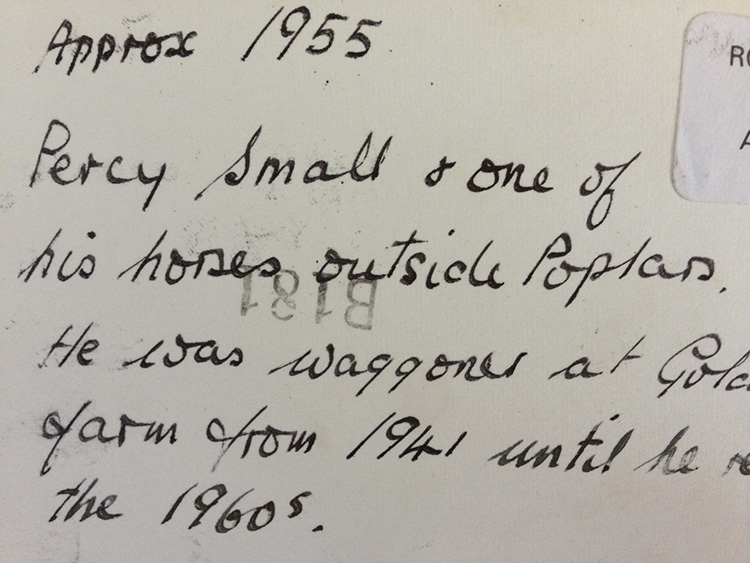 Approx 1955
Percy Small & one of
his horses outside Poplars.
He was waggoner at
farm from 1941 until he
the 1960s.
B181